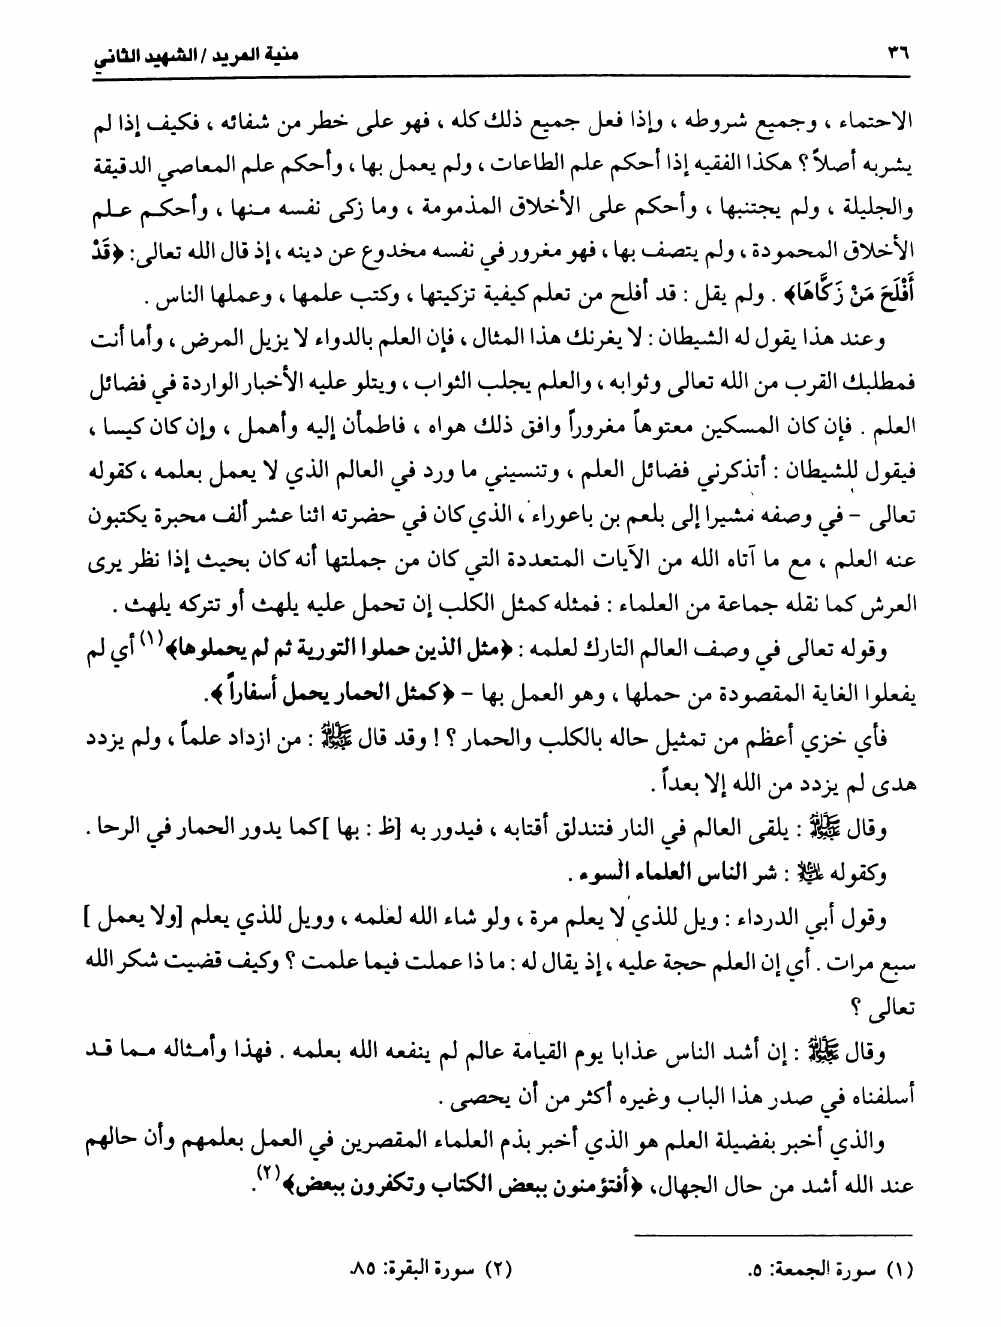 ٣٦
منية المريد / الشهيد الثاني
الاحتماء ، وجميع شروطه ، وإذا فعل جميع ذلك كله ، فهو على خطر من شفائه ، فكيف إذا لم
يشربه أصلاً ؟ هكذا الفقيه إذا أحكم علم الطاعات ، ولم يعمل بها ، وأحكم علم المعاصي الدقيقة
والجليلة ، ولم يجتنبها ، وأحكم على الأخلاق المذمومة ، وما زكى نفسه منها ، وأحكم علم
الأخلاق المحمودة ، ولم يتصف بها ، فهو مغرور في نفسه مخدوع عن دينه ، إذ قال الله تعالى: ﴿قَدْ
أَفْلَحَ مَنْ زَكَّاهَا﴾ . ولم يقل : قد أفلح من تعلم كيفية تزكيتها ، وكتب علمها ، وعملها الناس .
وعند هذا يقول له الشيطان : لا يغرنك هذا المثال ، فإن العلم بالدواء لا يزيل المرض ، وأما أنت
فمطلبك القرب من الله تعالى وثوابه ، والعلم يجلب الثواب ، ويتلو عليه الأخبار الواردة في فضائل
العلم . فإن كان المسكين معتوهاً مغروراً وافق ذلك هواه ، فاطمأن إليه وأهمل ، وإن كان كيسا ،
فيقول للشيطان : أتذكرني فضائل العلم ، وتنسيني ما ورد في العالم الذي لا يعمل بعلمه ، كقوله
تعالى – في وصفه مشيرا إلى بلعم بن باعوراء ، الذي كان في حضرته اثنا عشر ألف محبرة يكتبون
عنه العلم ، مع ما آتاه الله من الآيات المتعددة التي كان من جملتها أنه كان بحيث إذا نظر يرى
العرش كما نقله جماعة من العلماء : فمثله كمثل الكلب إن تحمل عليه يلهث أو تتركه يلهث .
وقوله تعالى في وصف العالم التارك لعلمه : ﴿مثل الذين حملوا التورية ثم لم يحملوها﴾(١) أي لم
يفعلوا الغاية المقصودة من حملها ، وهو العمل بها – ﴿كمثل الحمار يحمل أسفاراً﴾.
فأي خزي أعظم من تمثيل حاله بالكلب والحمار ؟ ! وقد قال ﷺ : من ازداد علماً ، ولم يزدد
هدى لم يزدد من الله إلا بعداً .
وقال ﷺ : يلقى العالم في النار فتندلق أقتابه ، فيدور به [ظ : بها ]كما يدور الحمار في الرحا .
وكقوله ﷺ : شر الناس العلماء السوء .
وقول أبي الدرداء : ويل للذي لا يعلم مرة ، ولو شاء الله لعلمه ، وويل للذي يعلم [ولا يعمل ]
سبع مرات . أي إن العلم حجة عليه ، إذ يقال له : ما ذا عملت فيما علمت ؟ وكيف قضيت شكر الله
تعالى ؟
وقال ﷺ : إن أشد الناس عذابا يوم القيامة عالم لم ينفعه الله بعلمه . فهذا وأمثاله مما قد
أسلفناه في صدر هذا الباب وغيره أكثر من أن يحصى .
والذي أخبر بفضيلة العلم هو الذي أخبر بذم العلماء المقصرين في العمل بعلمهم وأن حالهم
عند الله أشد من حال الجهال، ﴿أفتؤمنون ببعض الكتاب وتكفرون ببعض﴾(٢).
(١) سورة الجمعة: ٥.
(٢) سورة البقرة: ٨٥.